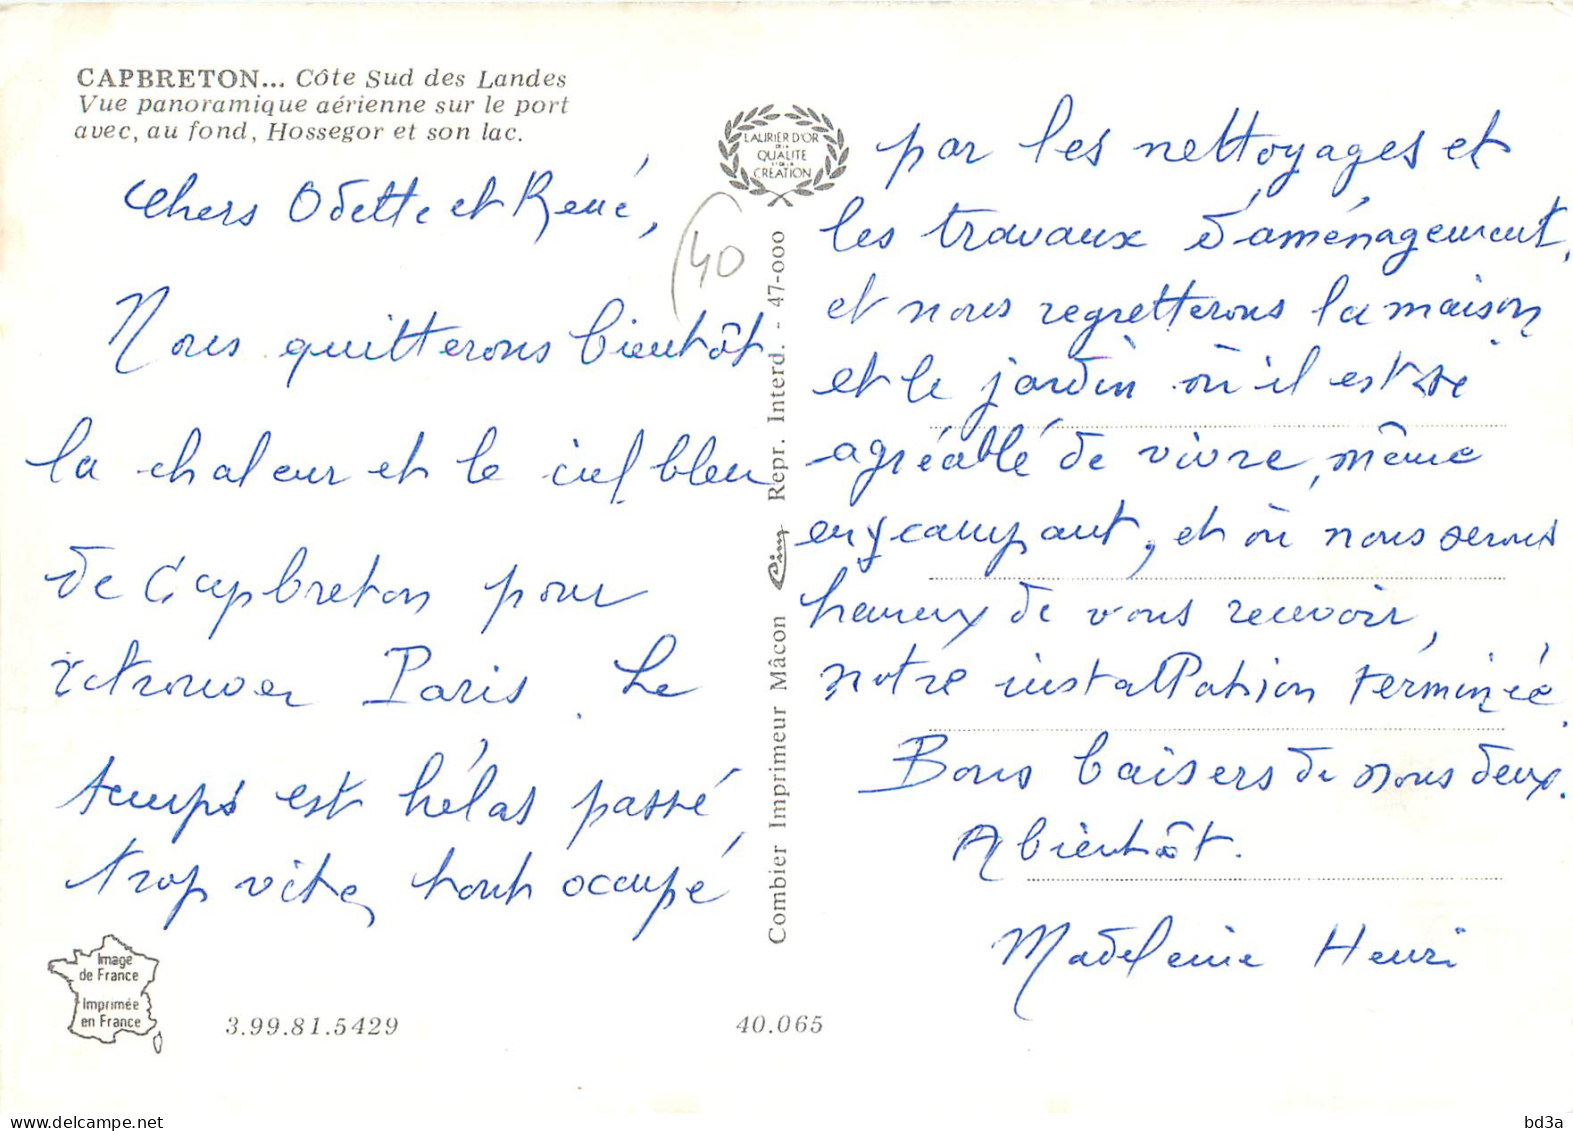 CAPBRETON... Côte Sud des Landes
Vue panoramique aérienne sur le port
avec, au fond, Hossegor et son lac.
Chers Odette et René,
Nous quitterons bientôt
la chaleur et le ciel bleu
de Capbreton pour
retrouver Paris. Le
temps est hélas passé,
trop vite, tout occupé
Image
de France
Imprimée
en France
3.99.81.5429
40.065
LAURIER D'OR
DE LA
QUALITE
ET DE LA
CREATION
40
Combier Imprimeur Mâcon Cim Repr. Interd. - 47-000
par les nettoyages et
les travaux d'aménagement,
et nous regretterons la maison
et le jardin où il est si
agréable de vivre, même
en y campant, et où nous serons
heureux de vous recevoir,
notre installation terminée.
Bons baisers de nous deux.
A bientôt.
Madeleine Henri
bd3a